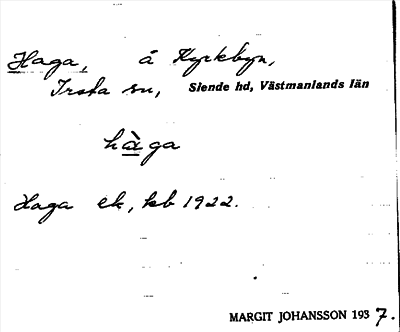 Haga, å Kyrkbyn,
Irsta sn, Siende hd, Västmanlands län
hàga
Haga ek, kb 1922.
MARGIT JOHANSSON 1937.